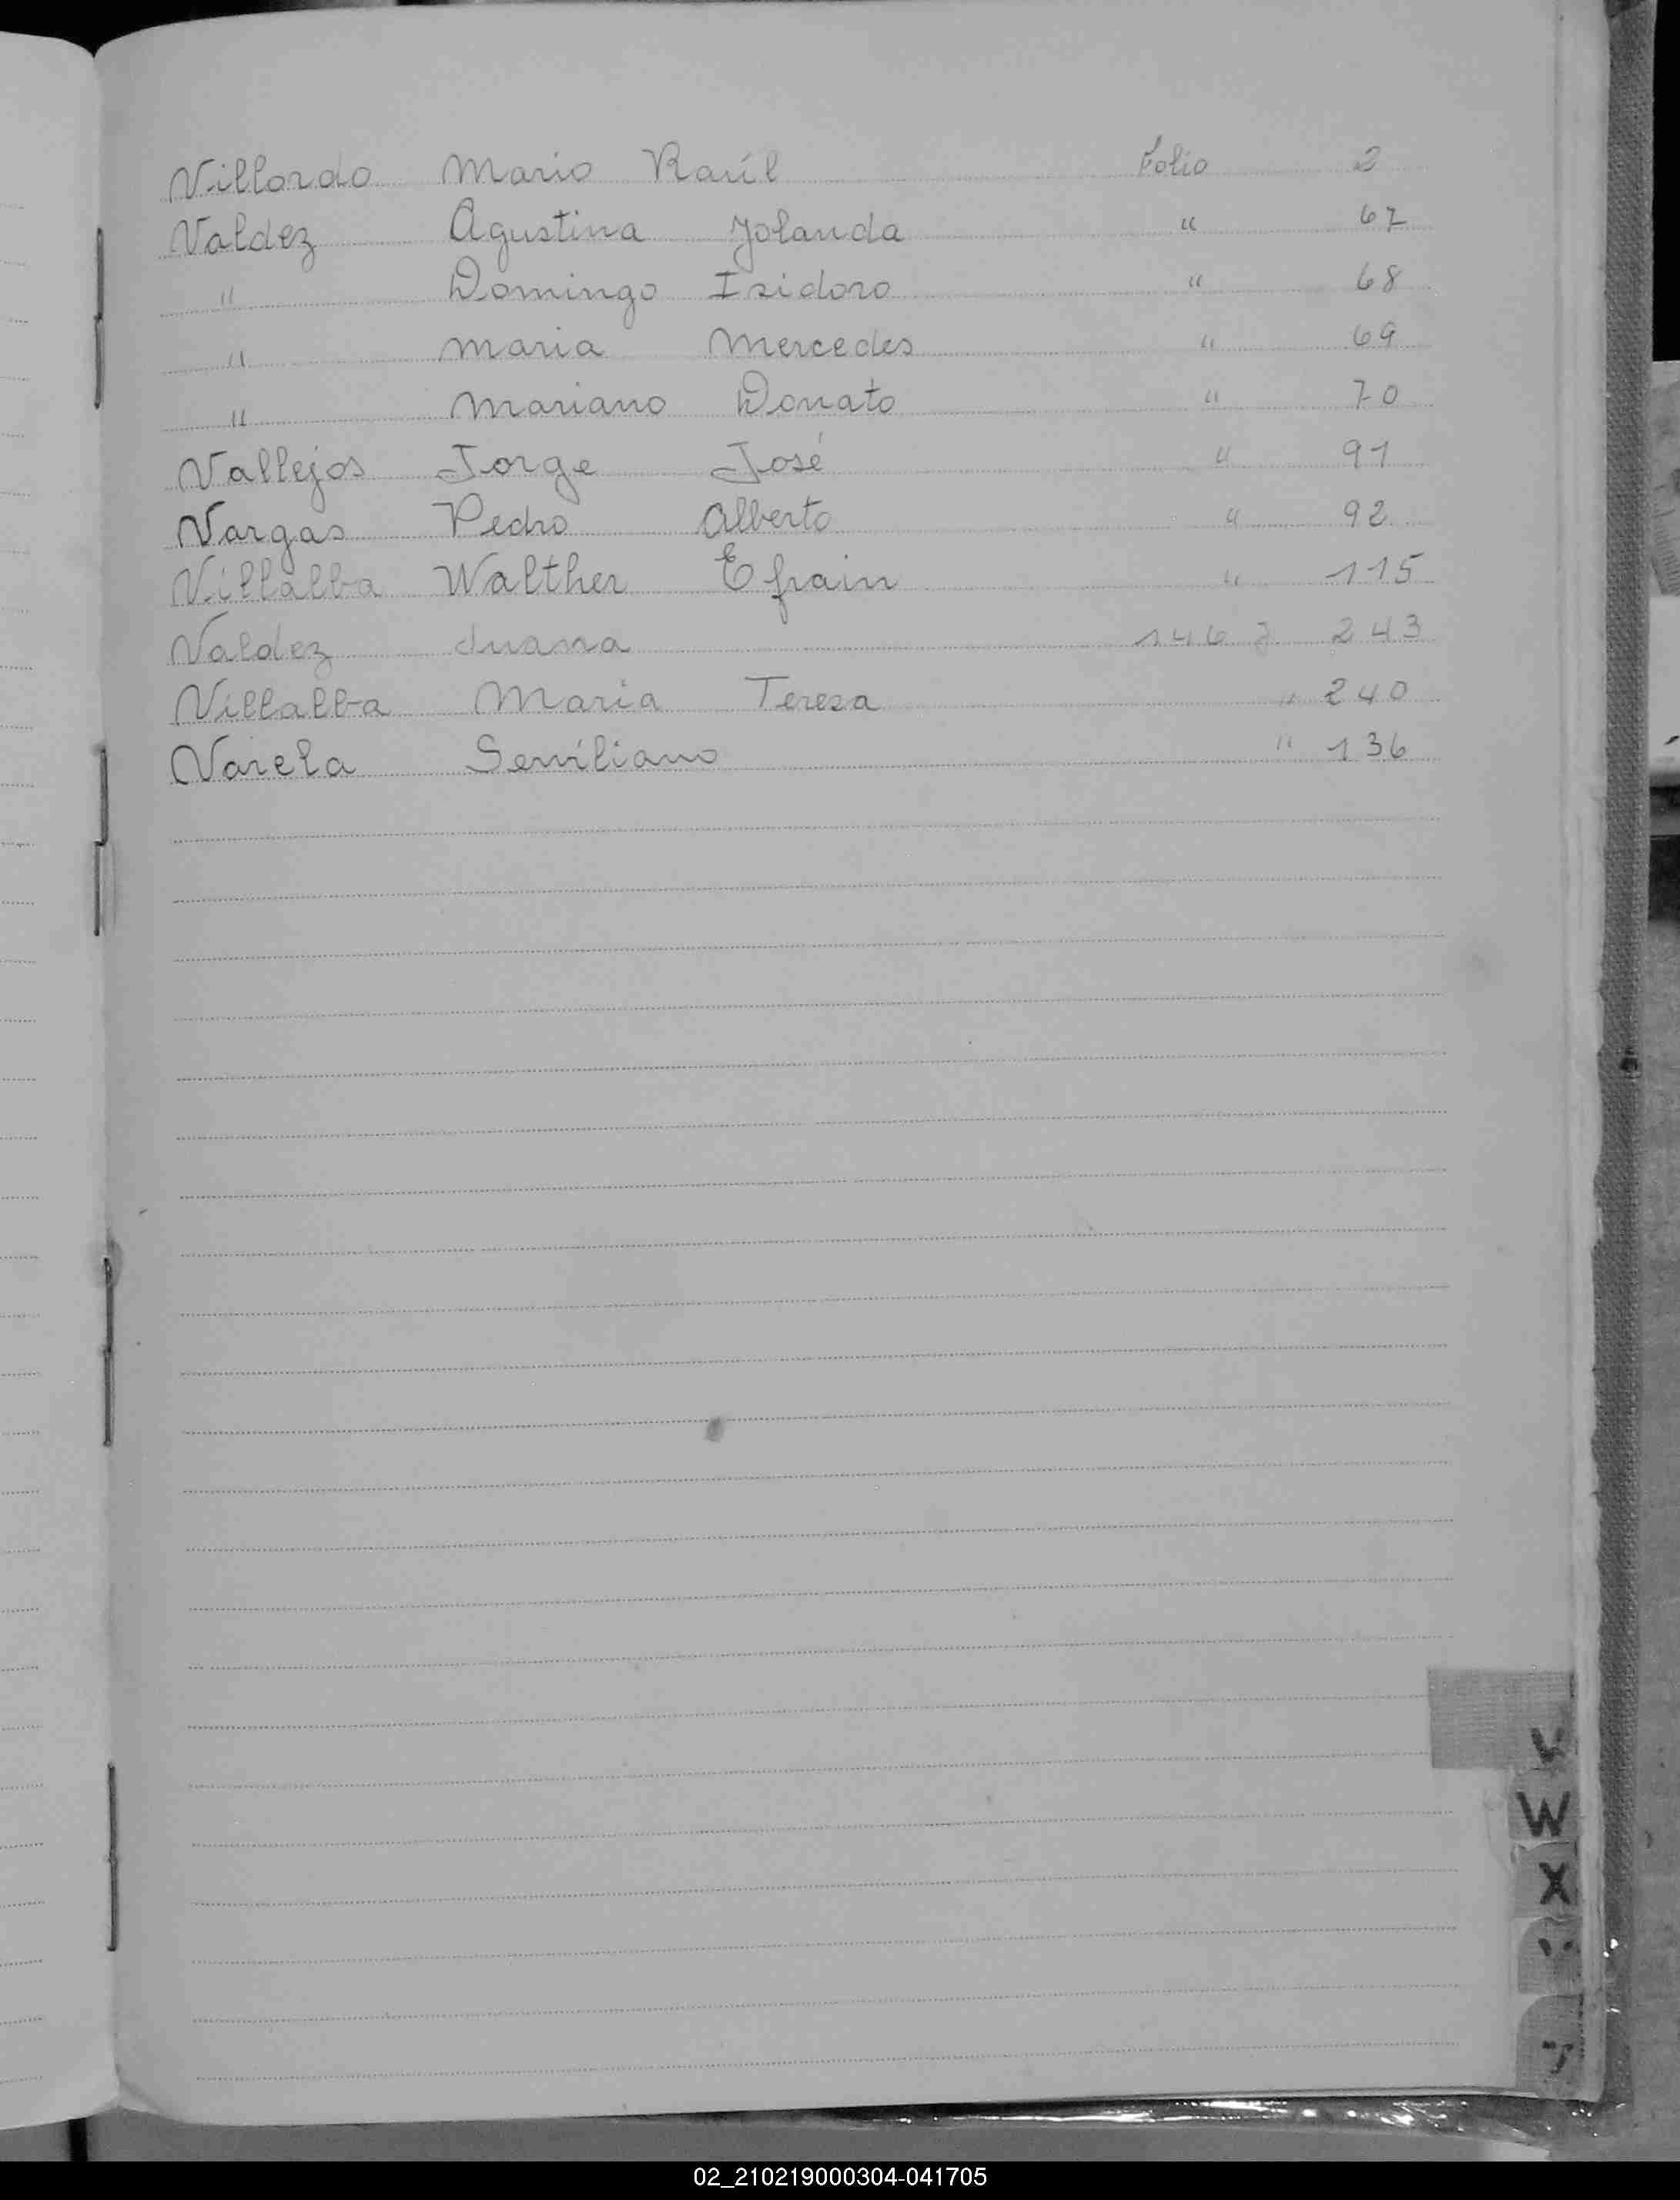 Villordo Mario Raúl Folio 2
Valdez Agustina Yolanda " 67
" Domingo Isidoro " 68
" Maria Mercedes " 69
" Mariano Donato " 70
Vallejos Jorge José " 91
Vargas Pedro Alberto " 92
Villalba Walther Efrain " 115
Valdez Juana 146 243
Villalba Maria Teresa " 240
Varela " 136
V
W
X
02_210219000304-041705